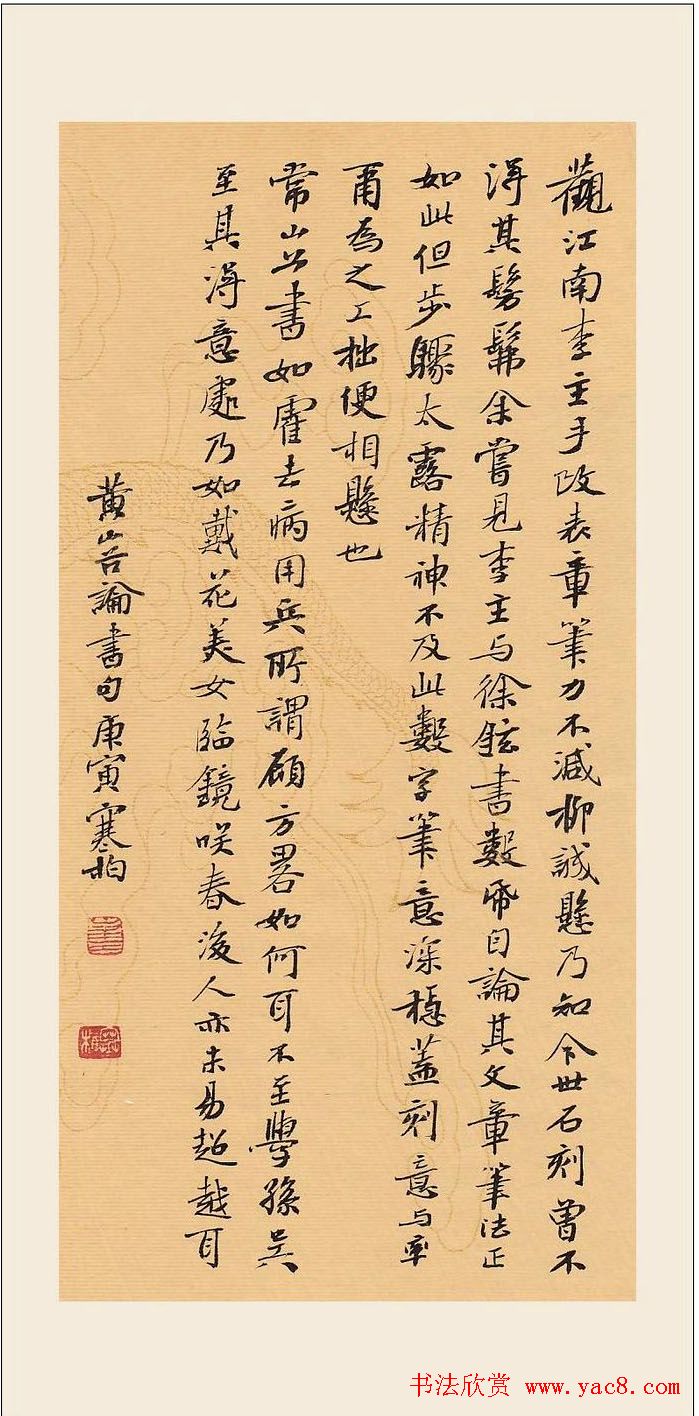 觀江南李主手改表章筆力不減柳誠懸乃知今世石刻曾不
得其髣髴余嘗見李主与徐鉉書數帋自論其文章筆法正
如此但步驟太露精神不及此數字筆意深穩蓋刻意与率
爾為之工拙便相懸也
常山公書如霍去病用兵所謂顧方畧如何耳不至學孫吳
至其得意處乃如戴花美女臨鏡咲春後人亦未易超越耳
黃山谷論書句庚寅寒柏
書法欣賞 www.yac8.com